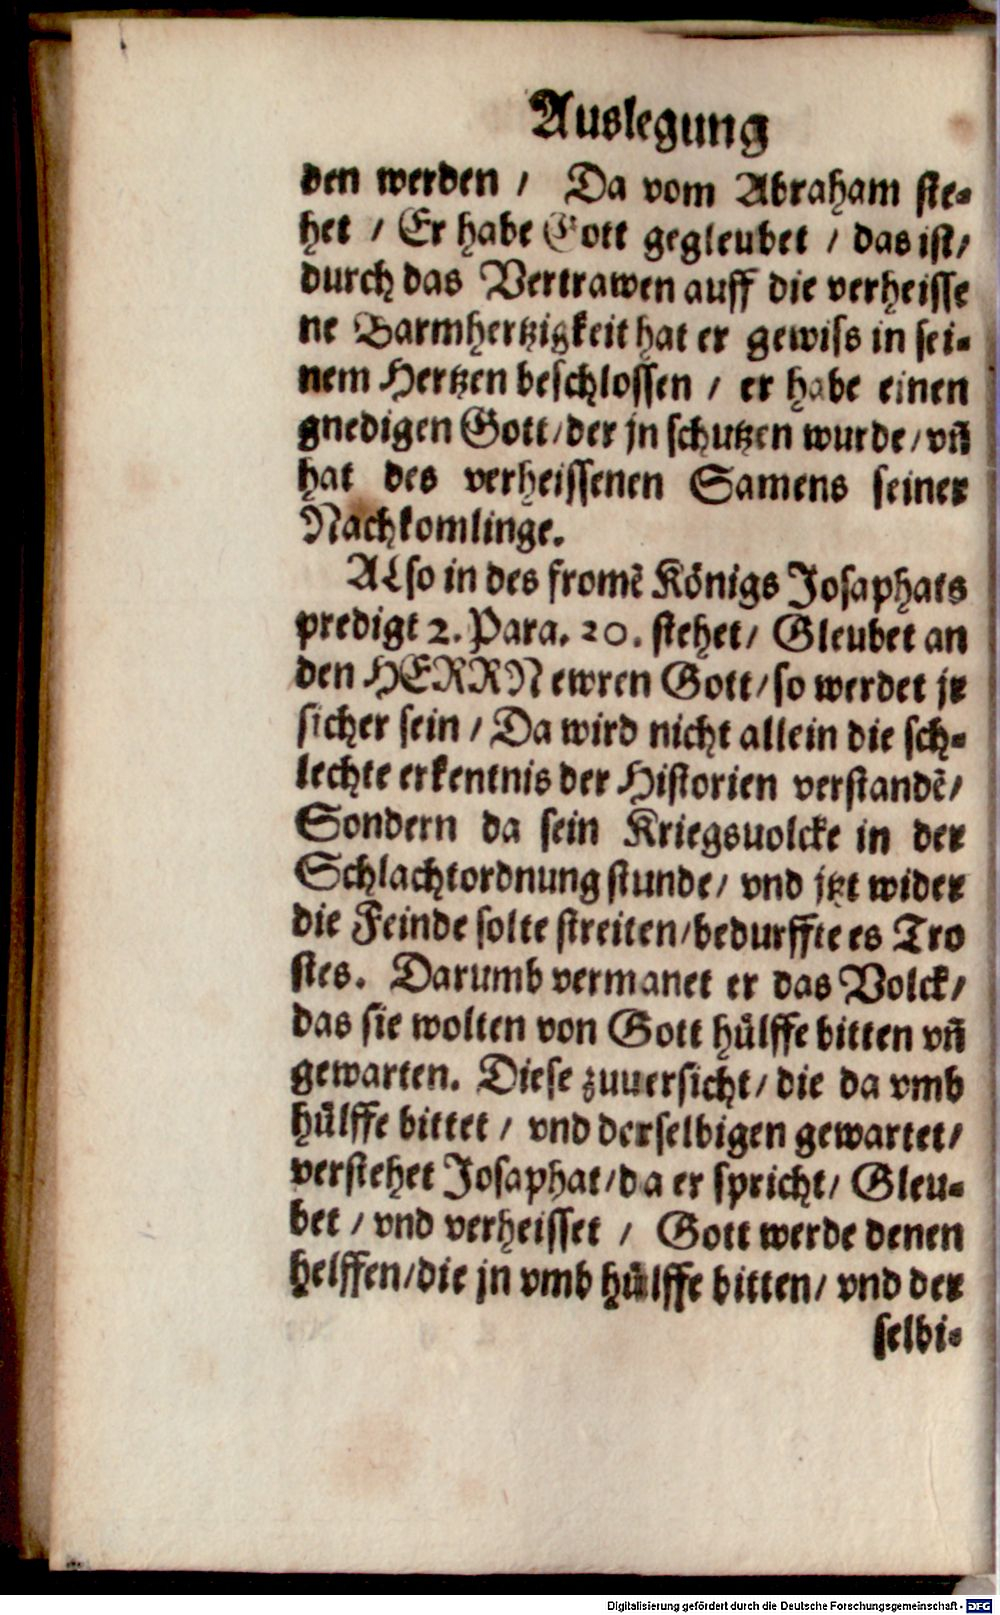 Auslegung
den werden / Da vom Abraham ste-
het / Er habe Gott gegleubet / das ist/
durch das Vertrawen auff die verheisse
ne Barmhertzigkeit hat er gewiss in sei-
nem Hertzen beschlossen / er habe einen
gnedigen Gott/der jn schutzen wurde/vn̄
hat des verheissenen Samens seiner
Nachkomlinge.
ALso in des fromē Königs Josaphats
predigt 2. Para. 20. stehet/ Gleubet an
den HERRN ewren Gott/so werdet jr
sicher sein / Da wird nicht allein die sch-
lechte erkentnis der Historien verstandē/
Sondern da sein Kriegsuolcke in der
Schlachtordnung stunde/ vnd jtzt wider
die Feinde solte streiten/bedurffte es Tro
stes. Darumb vermanet er das Volck/
das sie wolten von Gott hülffe bitten vn̄
gewarten. Diese zuuersicht/ die da vmb
hülffe bittet / vnd derselbigen gewartet/
verstehet Josaphat/da er spricht/ Gleu-
bet / vnd verheisset / Gott werde denen
helffen/die jn vmb hülffe bitten/ vnd der
selbi-
Digitalisierung gefördert durch die Deutsche Forschungsgemeinschaft - DFG